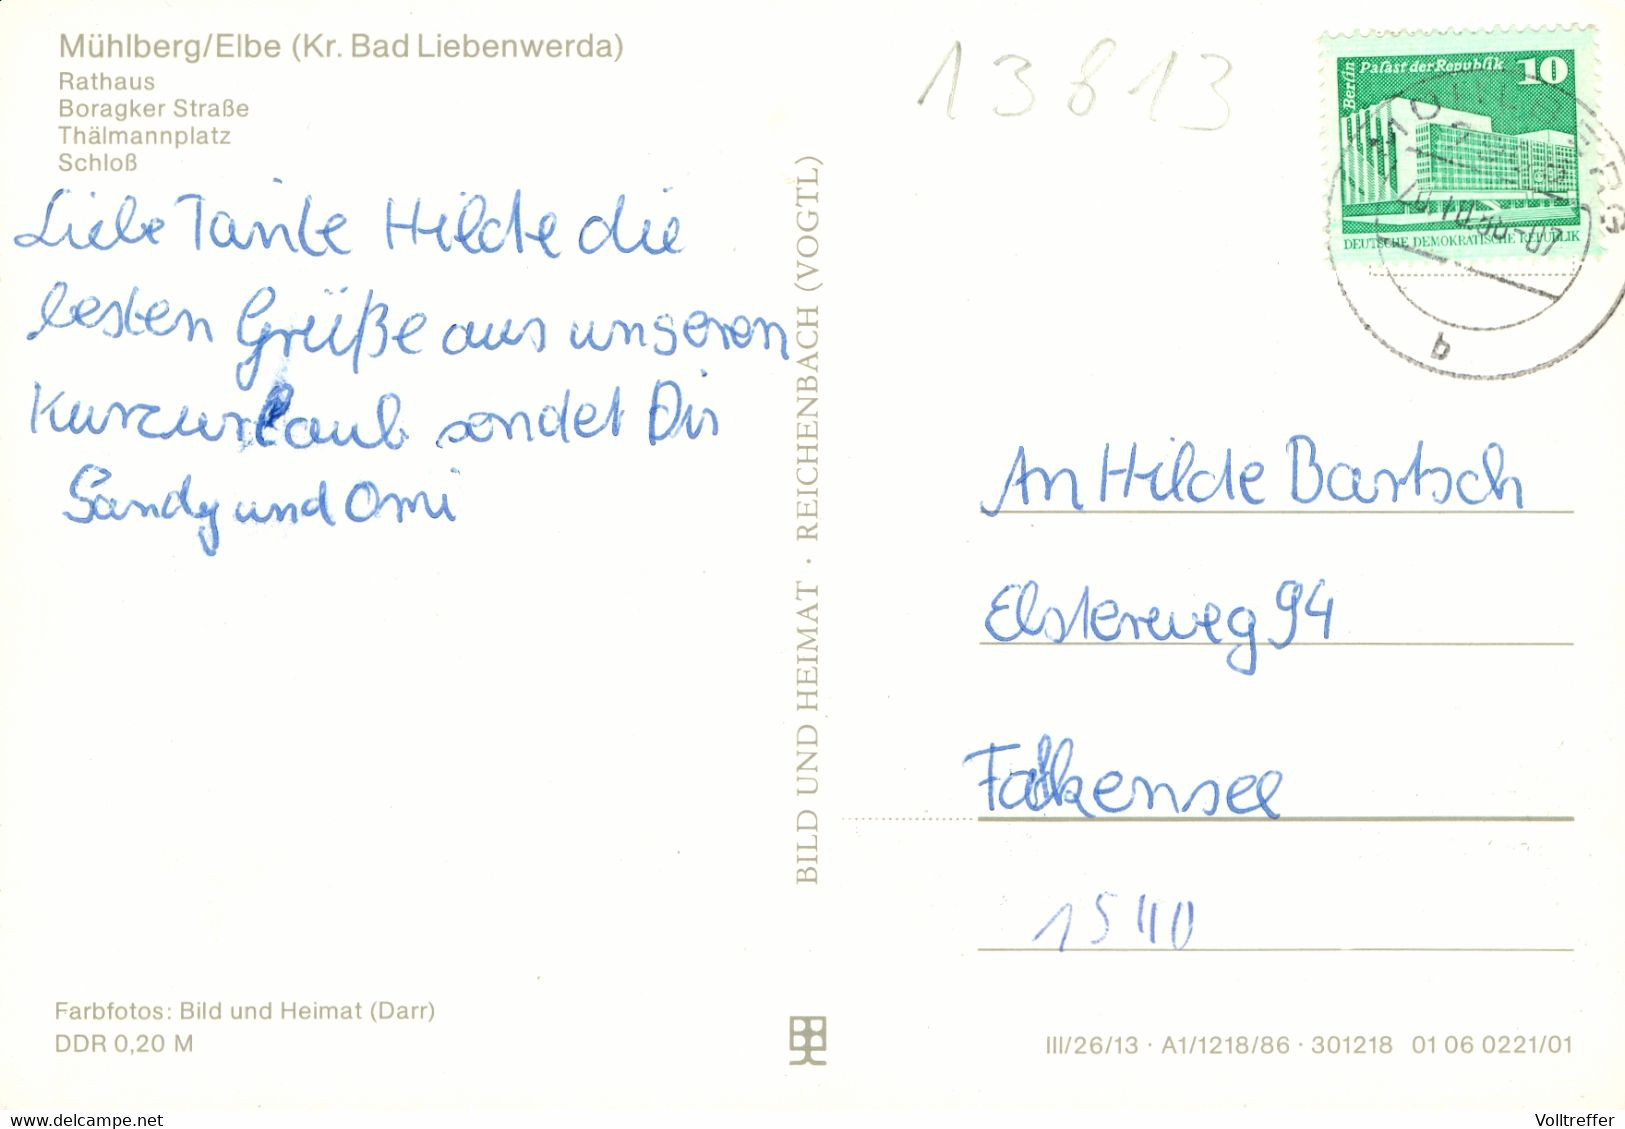 Mühlberg/Elbe (Kr. Bad Liebenwerda)
Rathaus
Boragker Straße
Thälmannplatz
Schloß
Liebe Tante Hilde die
besten Grüße aus unseren
Kurzurlaub sendet Dir
Sandy und Omi
BILD UND HEIMAT · REICHENBACH (VOGTL)
13813
Berlin
Palast der Republik 10
DEUTSCHE DEMOKRATISCHE REPUBLIK
b
An Hilde Bartsch
Elstereweg 94
Falkensee
1540
Farbfotos: Bild und Heimat (Darr)
DDR 0,20 M
III/26/13 · A1/1218/86 · 301218 01 06 0221/01
www.delcampe.net
Volltreffer